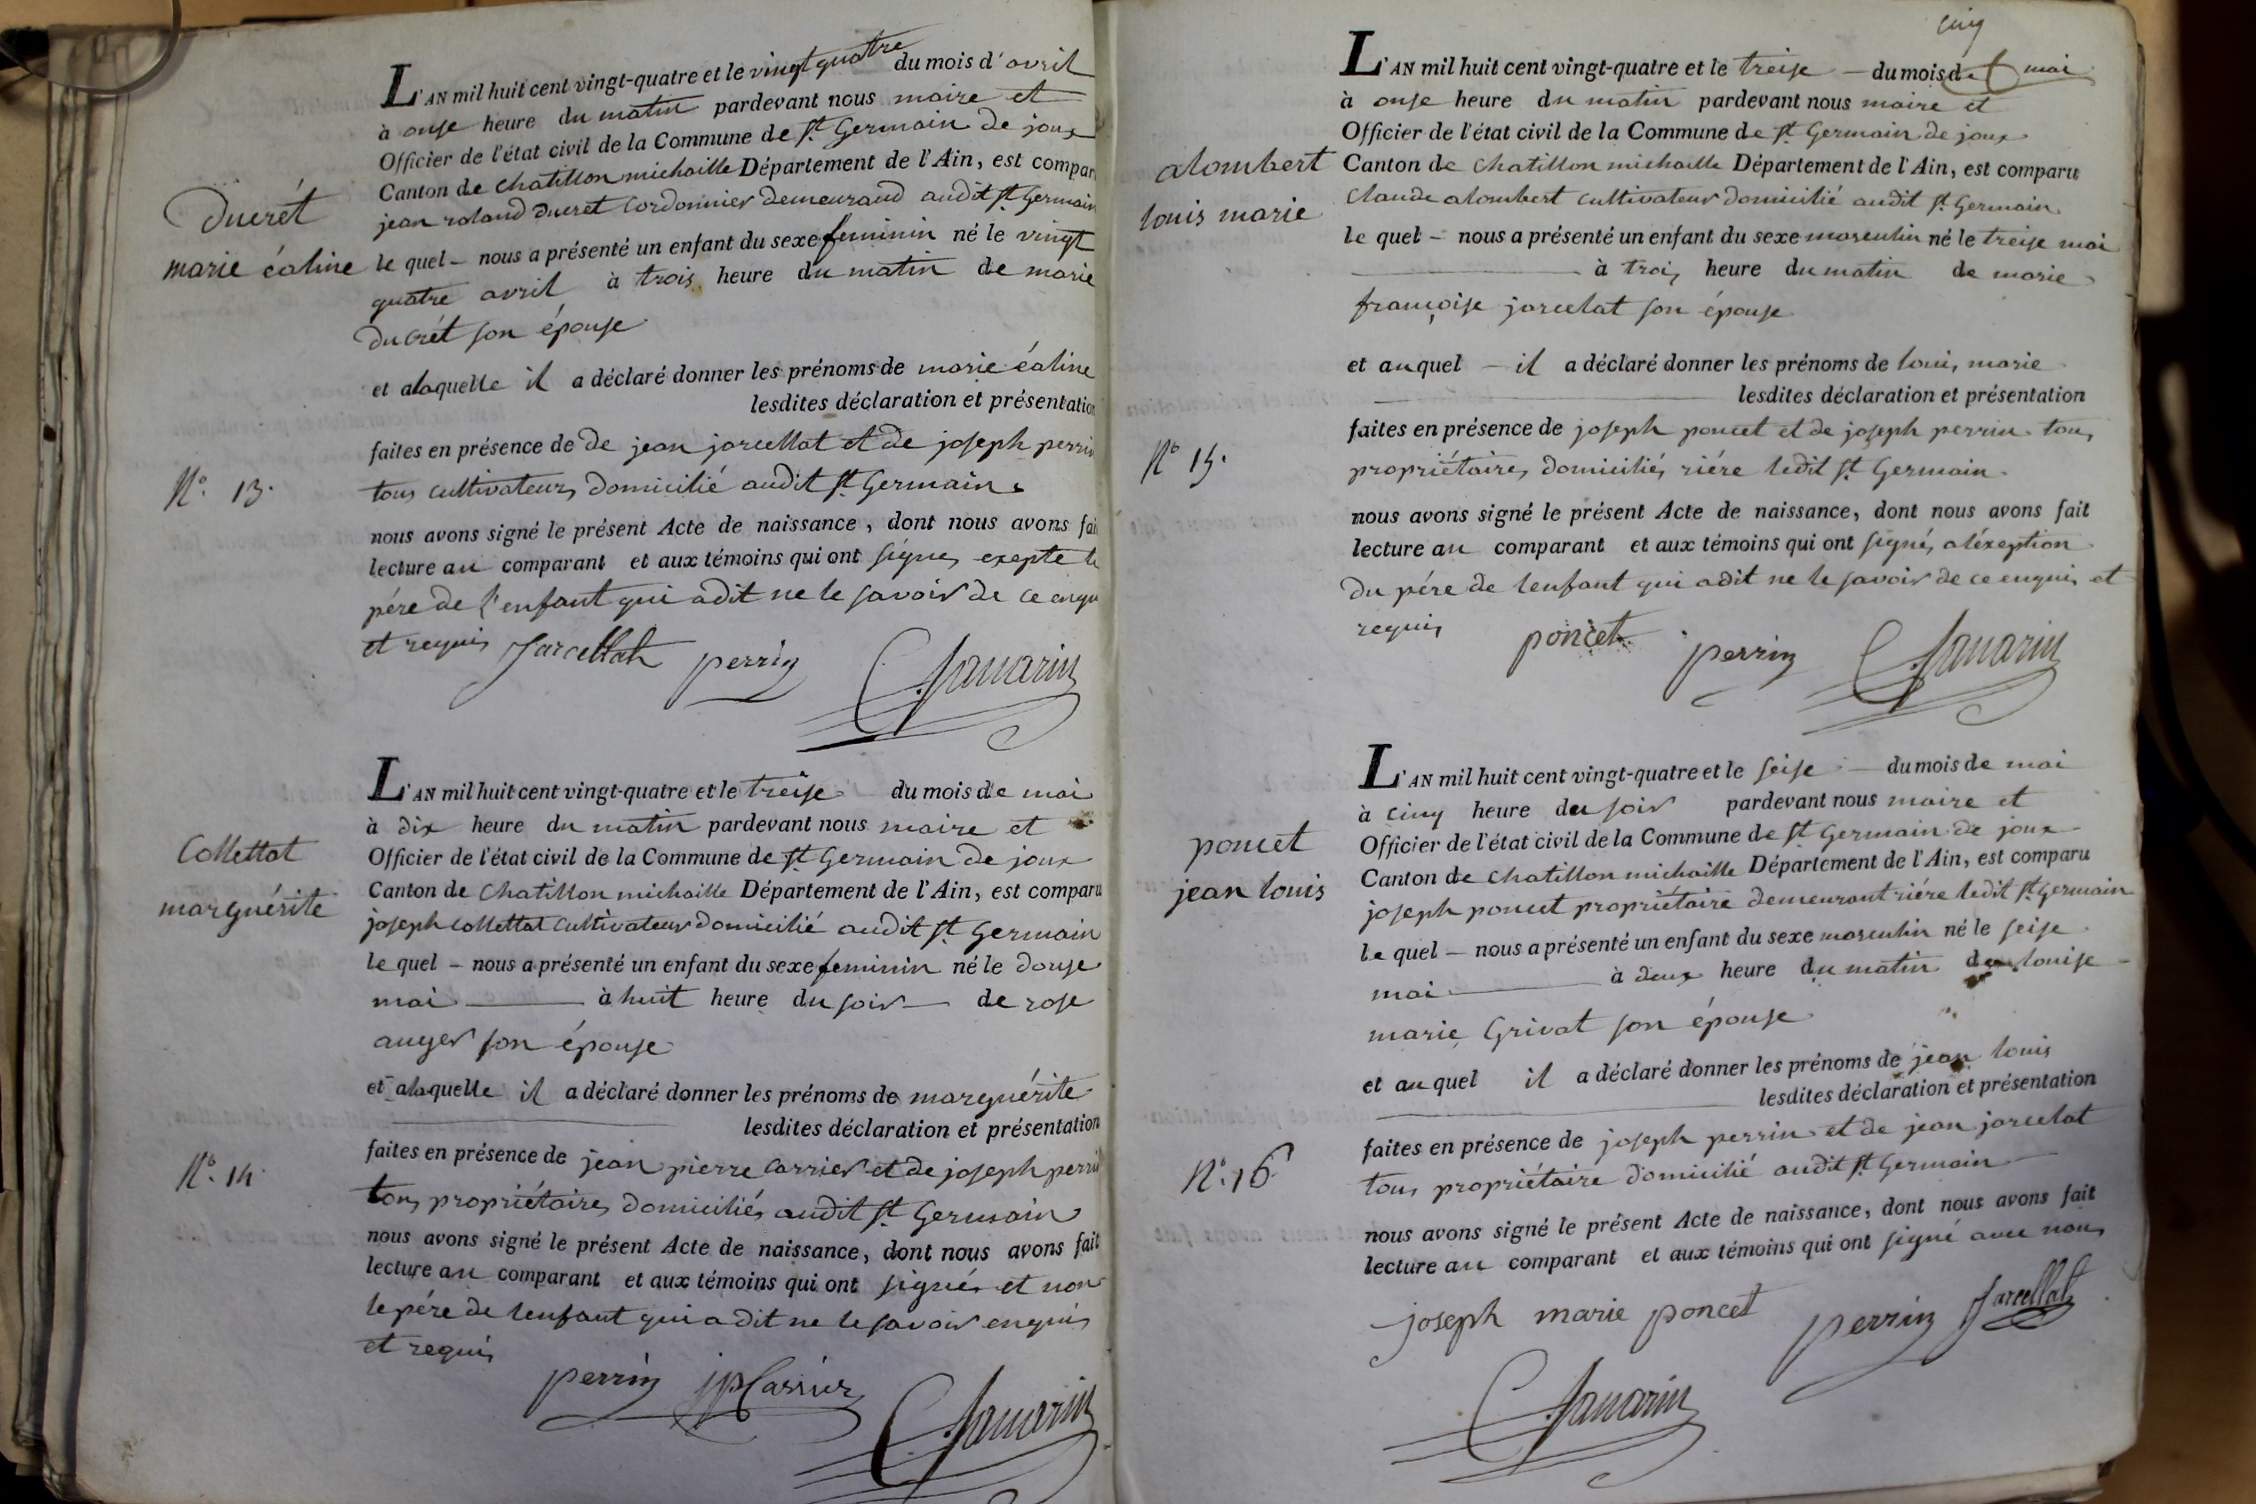 Ducrét
marie éaline
N.° 13.
L'AN mil huit cent vingt-quatre et le vingt quatre du mois d'avril
à onse heure du matin pardevant nous maire et
Officier de l'état civil de la Commune de St. Germain de joux
Canton de Chatillon michaille Département de l'Ain, est compar
jean roland Ducret Cordonnier demeurand audit St. Germain
le quel – nous a présenté un enfant du sexe feminin né le vingt
quatre avril à trois heure du matin de marie
Ducrét son épouse
et alaquelle il a déclaré donner les prénoms de marie éaline
lesdites déclaration et présentation
faites en présence de de jean jarcellat et de joseph perrin
tous cultivateurs domicilié audit St. Germain
nous avons signé le présent Acte de naissance, dont nous avons fai
lecture au comparant et aux témoins qui ont signés exepte le
pére de l'enfant qui a dit ne le savoir de ce enqu
et requis Jarcellat perrin C. Savarin
Collettat
marguérite
N.° 14.
L'AN mil huit cent vingt-quatre et le treise du mois de mai
à dix heure du matin pardevant nous maire et
Officier de l'état civil de la Commune de St. Germain de joux
Canton de Chatillon michaille Département de l'Ain, est comparu
joseph Collettat Cultivateur domicilié audit St. Germain
le quel – nous a présenté un enfant du sexe feminin né le douse
mai à huit heure du soir de rose
auger son épouse
et alaquelle il a déclaré donner les prénoms de marguérite
lesdites déclaration et présentation
faites en présence de jean pierre Carrier et de joseph perrin
tous propriétaires domiciliés audit St. Germain
nous avons signé le présent Acte de naissance, dont nous avons fait
lecture au comparant et aux témoins qui ont signés et non
le pére de lenfant qui a dit ne le savoir enquis
et requis
perrin jpCarrier C. Savarin
cinq
alombert
louis marie
N° 15.
L'AN mil huit cent vingt-quatre et le treise – du mois de mai
à onse heure du matin pardevant nous maire et
Officier de l'état civil de la Commune de St. Germain de joux
Canton de Chatillon michaille Département de l'Ain, est comparu
Claude alombert cultivateur domicilié audit St. Germain
le quel – nous a présenté un enfant du sexe masculin né le treise mai
à trois heure du matin de marie
françoise jarcelat son épouse
et au quel – il a déclaré donner les prénoms de louis marie
lesdites déclaration et présentation
faites en présence de joseph poncet et de joseph perrin tous
propriétaires domiciliés riére ledit St. Germain
nous avons signé le présent Acte de naissance, dont nous avons fait
lecture au comparant et aux témoins qui ont signés aléxeption
du pére de lenfant qui a dit ne le savoir de ce enquis et
requis poncet perrin C. Savarin
poncet
jean louis
N.° 16
L'AN mil huit cent vingt-quatre et le seise – du mois de mai
à cinq heure du soir pardevant nous maire et
Officier de l'état civil de la Commune de St. Germain de joux
Canton de Chatillon michaille Département de l'Ain, est comparu
joseph poncet propriétaire demeurant riére ledit St. Germain
le quel – nous a présenté un enfant du sexe masculin né le seise
mai à deux heure du matin de louise
marie Grivat son épouse
et au quel il a déclaré donner les prénoms de jean louis
lesdites déclaration et présentation
faites en présence de joseph perrin et de jean jarcelat
tous propriétaire domicilié audit St. Germain
nous avons signé le présent Acte de naissance, dont nous avons fait
lecture au comparant et aux témoins qui ont signé avec nous
joseph marie poncet perrin Jarcellat
C. Savarin